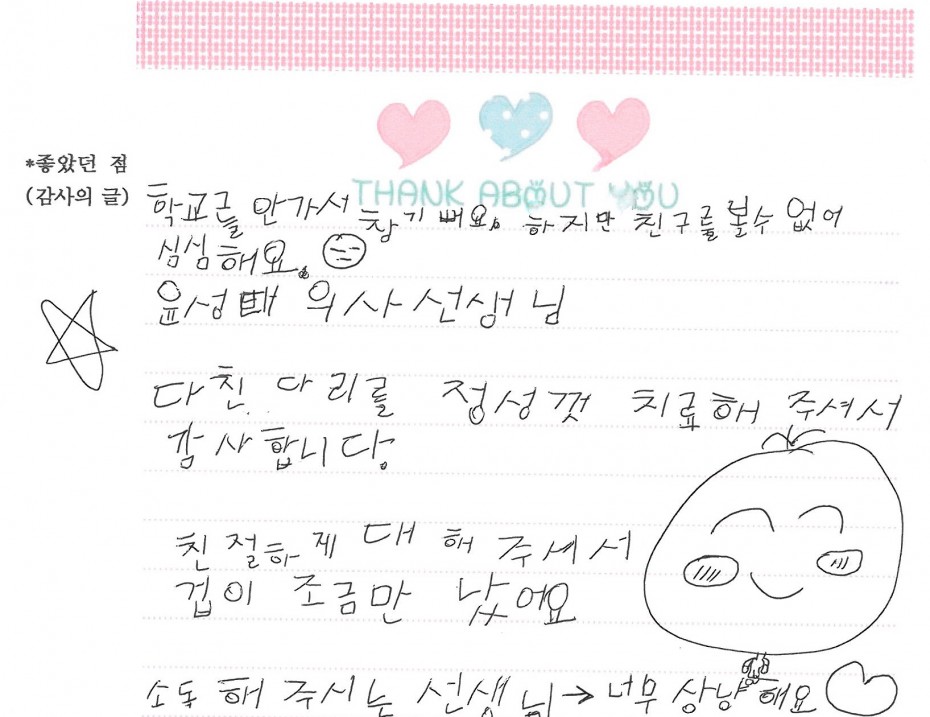 *좋았던 점
(감사의 글)
THANK ABOUT YOU
학교를 안가서 참 기뻐요. 하지만 친구를 볼수 없어
심심해요.
윤성빼 의사선생님
다친 다리를 정성껏 치료해 주셔서
감사합니다.
친절하게 대해 주셔서
겁이 조금만 났어요
소독해 주시는 선생님→너무 상냥해요